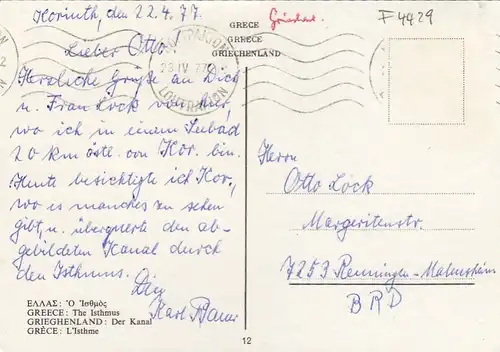 Korinth, den 22.4.77
Lieber Otto!
Herzliche Grüße an Dich
u. Frau Löck von hier,
wo ich in einem Seebad
20 km östl. von Kor. bin.
Heute besichtigte ich Kor.,
wo es manches zu sehen
gibt, u. überquerte den ab-
gebildeten Kanal durch
den Isthmus.
Dein
Karl
ΕΛΛΑΣ: Ὁ Ἰσθμὸς
GREECE: The Isthmus
GRIEGHENLAND: Der Kanal
GRÈCE: L'Isthme
GRECE
GREECE
GRIECHENLAND
F 4429
23 IV 77
LOUTRAKION
Herrn
Otto Löck
Margeritenstr.
7253 Renningen-Malmsheim
BRD
12